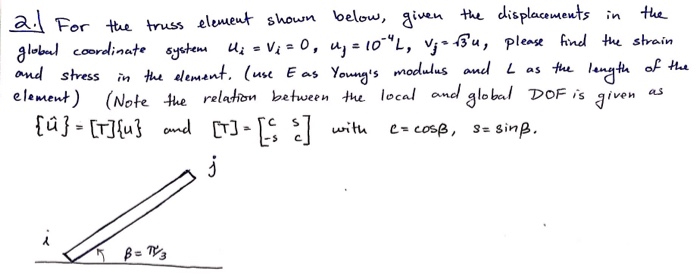 2.) For the truss element shown below, given the displacements in the
global coordinate system u_i = v_i = 0, u_j = 10^-4 L, v_j = √3 u, please find the strain
and stress in the element. (use E as Young's modulus and L as the length of the
element) (Note the relation between the local and global DOF is given as
{û} = [T]{u} and [T] = [c s; -s c] with c = cosβ, s = sinβ.
j
i
β = π/3